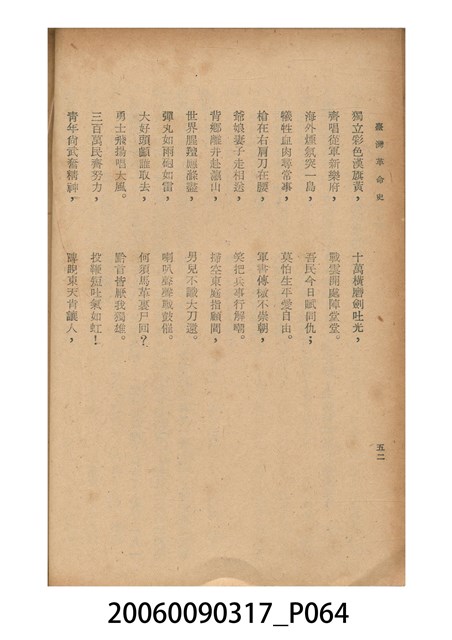 臺灣革命史
獨立彩色漢旗黃，　十萬橫磨劍吐光，
齊唱從軍新樂府，　戰雲開處陣堂堂。
海外煙氛突一島，　吾民今日賦同仇；
犧牲血肉尋常事，　莫怕生平愛自由。
槍在右肩刀在腰，　軍書傳檄不崇朝，
爺娘妻子走相送，　笑把兵事行解嘲。
背鄉離井赴瀛山，　掃空東庭指顧間，
世界腥羶應滌盡，　男兒不識大刀還。
彈丸如雨砲如雷，　喇叭聲聲戰鼓催。
大好頭顱誰取去，　何須馬革裹尸回？
勇士飛揚唱大風，　黔首皆厭我獨雄。
三百萬民齊努力，　投鞭短吐氣如虹！
青年尚武奮精神，　睥睨東天肯讓人，
五二
20060090317_P064